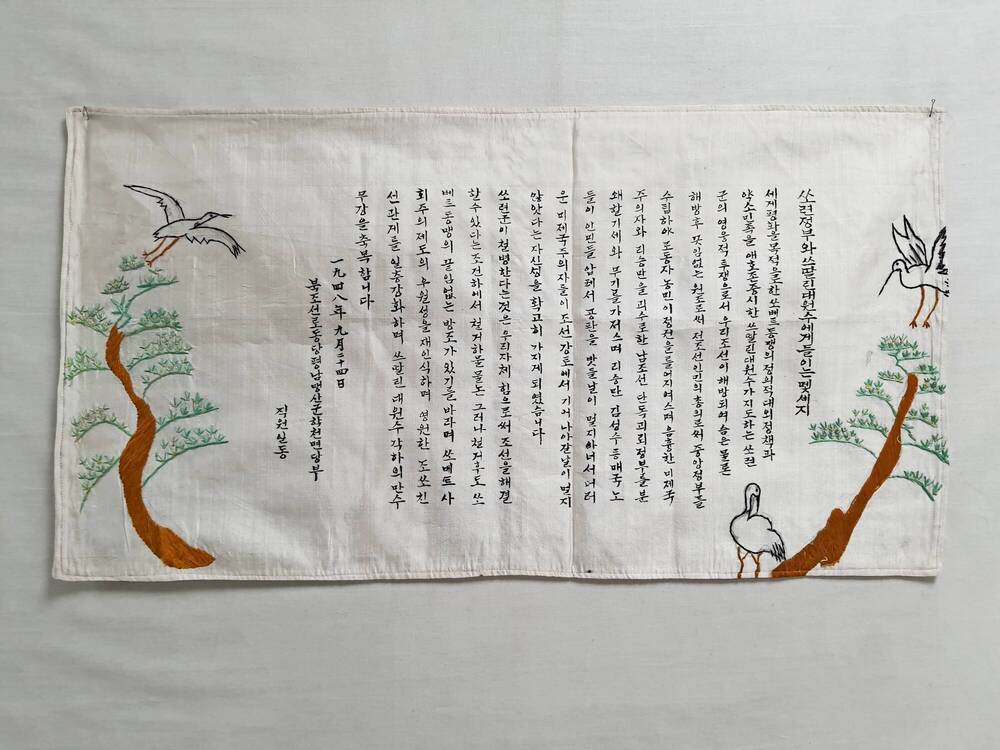 쏘련정부와쓰딸린대원수에게들이는멧세지
세게평화을목적을도한쏘베트동맹의정의적대외정책과
약소민족을 애호조동시한쓰딸린대원수가지도하는 쏘련
군의 영웅적투쟁으로서 우리조선이해방되여슴은물론
해방후 끗임없는 원조로써 전조선인민의총의로써 중앙정부를
수립하야 로동자 농민이정권을들어지여스며음흉한미제국
주의자와 리승만을괴수로한남조선 단독괴뢰정부를분
쇄할기세와 무기를가저스며 리승만 김성수등매국노
들이 인민들 압레서 공판을 밧들날이 멀지아너서 더러
운 미제국주의자들이조선강토에서 기어나아갈날이멀지
않앗다는자신성을 확고히 가지게 되였습니다
쏘련군이철병한다는것은우리자체 힘으로써 조선을해결
할수있다는조건하에서 철거하물론 그러나철거후도 쏘
베트동맹의 끝임없는 방조가 있기를 바라며 쏘베트 사
회주의제도의 우월성을 재인식하며 영원한 조쏘친
선관게를 일층강화하며 쓰딸린 대원수각하의만수
무강을축복합니다
一九四八年九月二十四日
북조선로동당평남맹산군학천면당부
직원일동